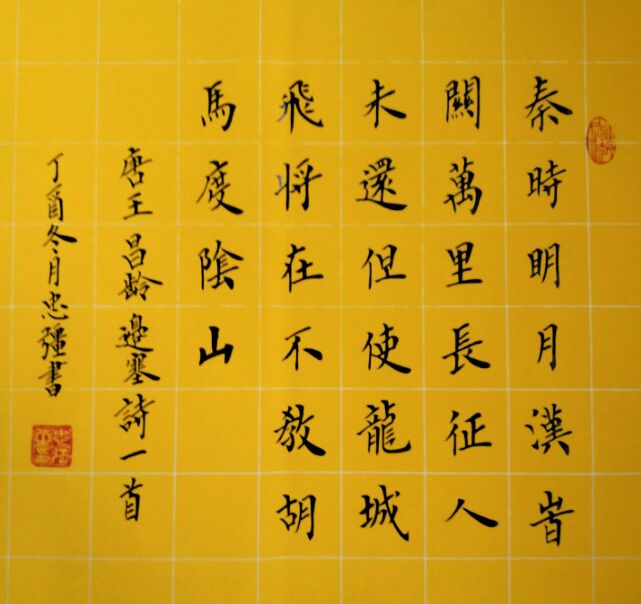 秦時明月漢峕
關萬里長征人
未還但使龍城
飛将在不教胡
馬度陰山
唐王昌齡邊塞詩一首
丁酉冬月忠彊書